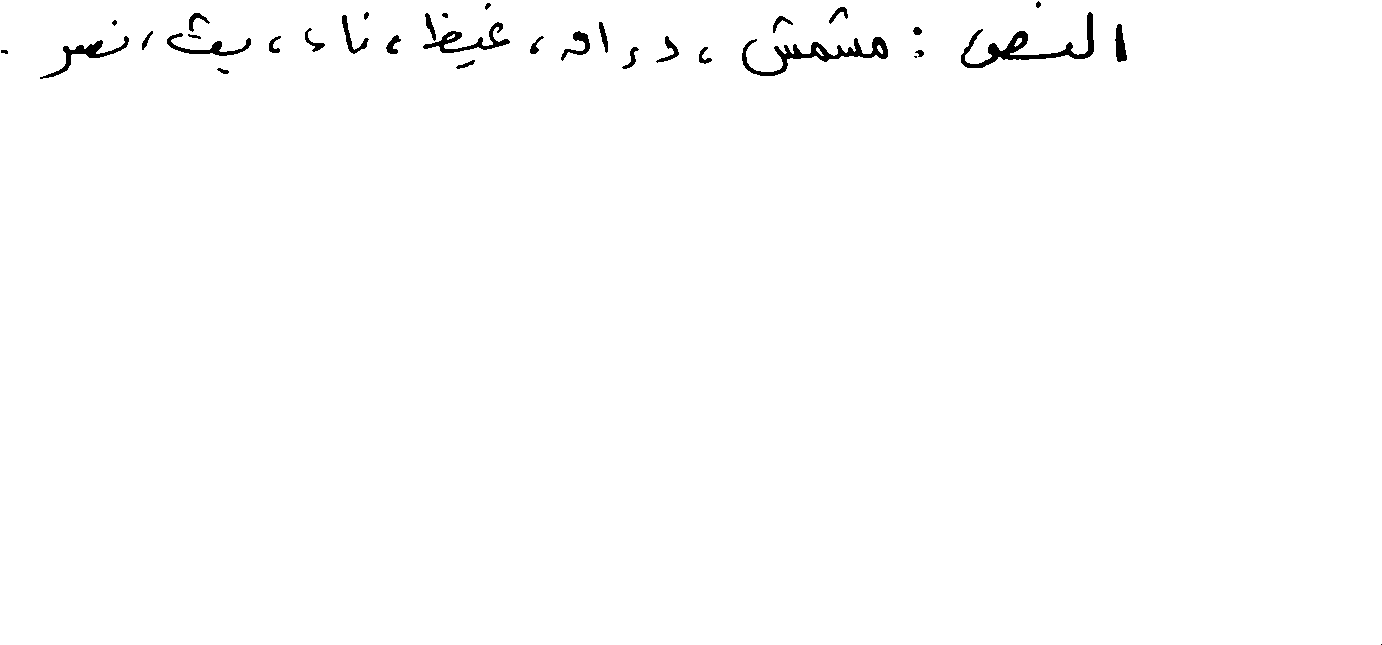 النص : مشمش ، دراق ، غيظ ، ناء ، يث ، نصر .